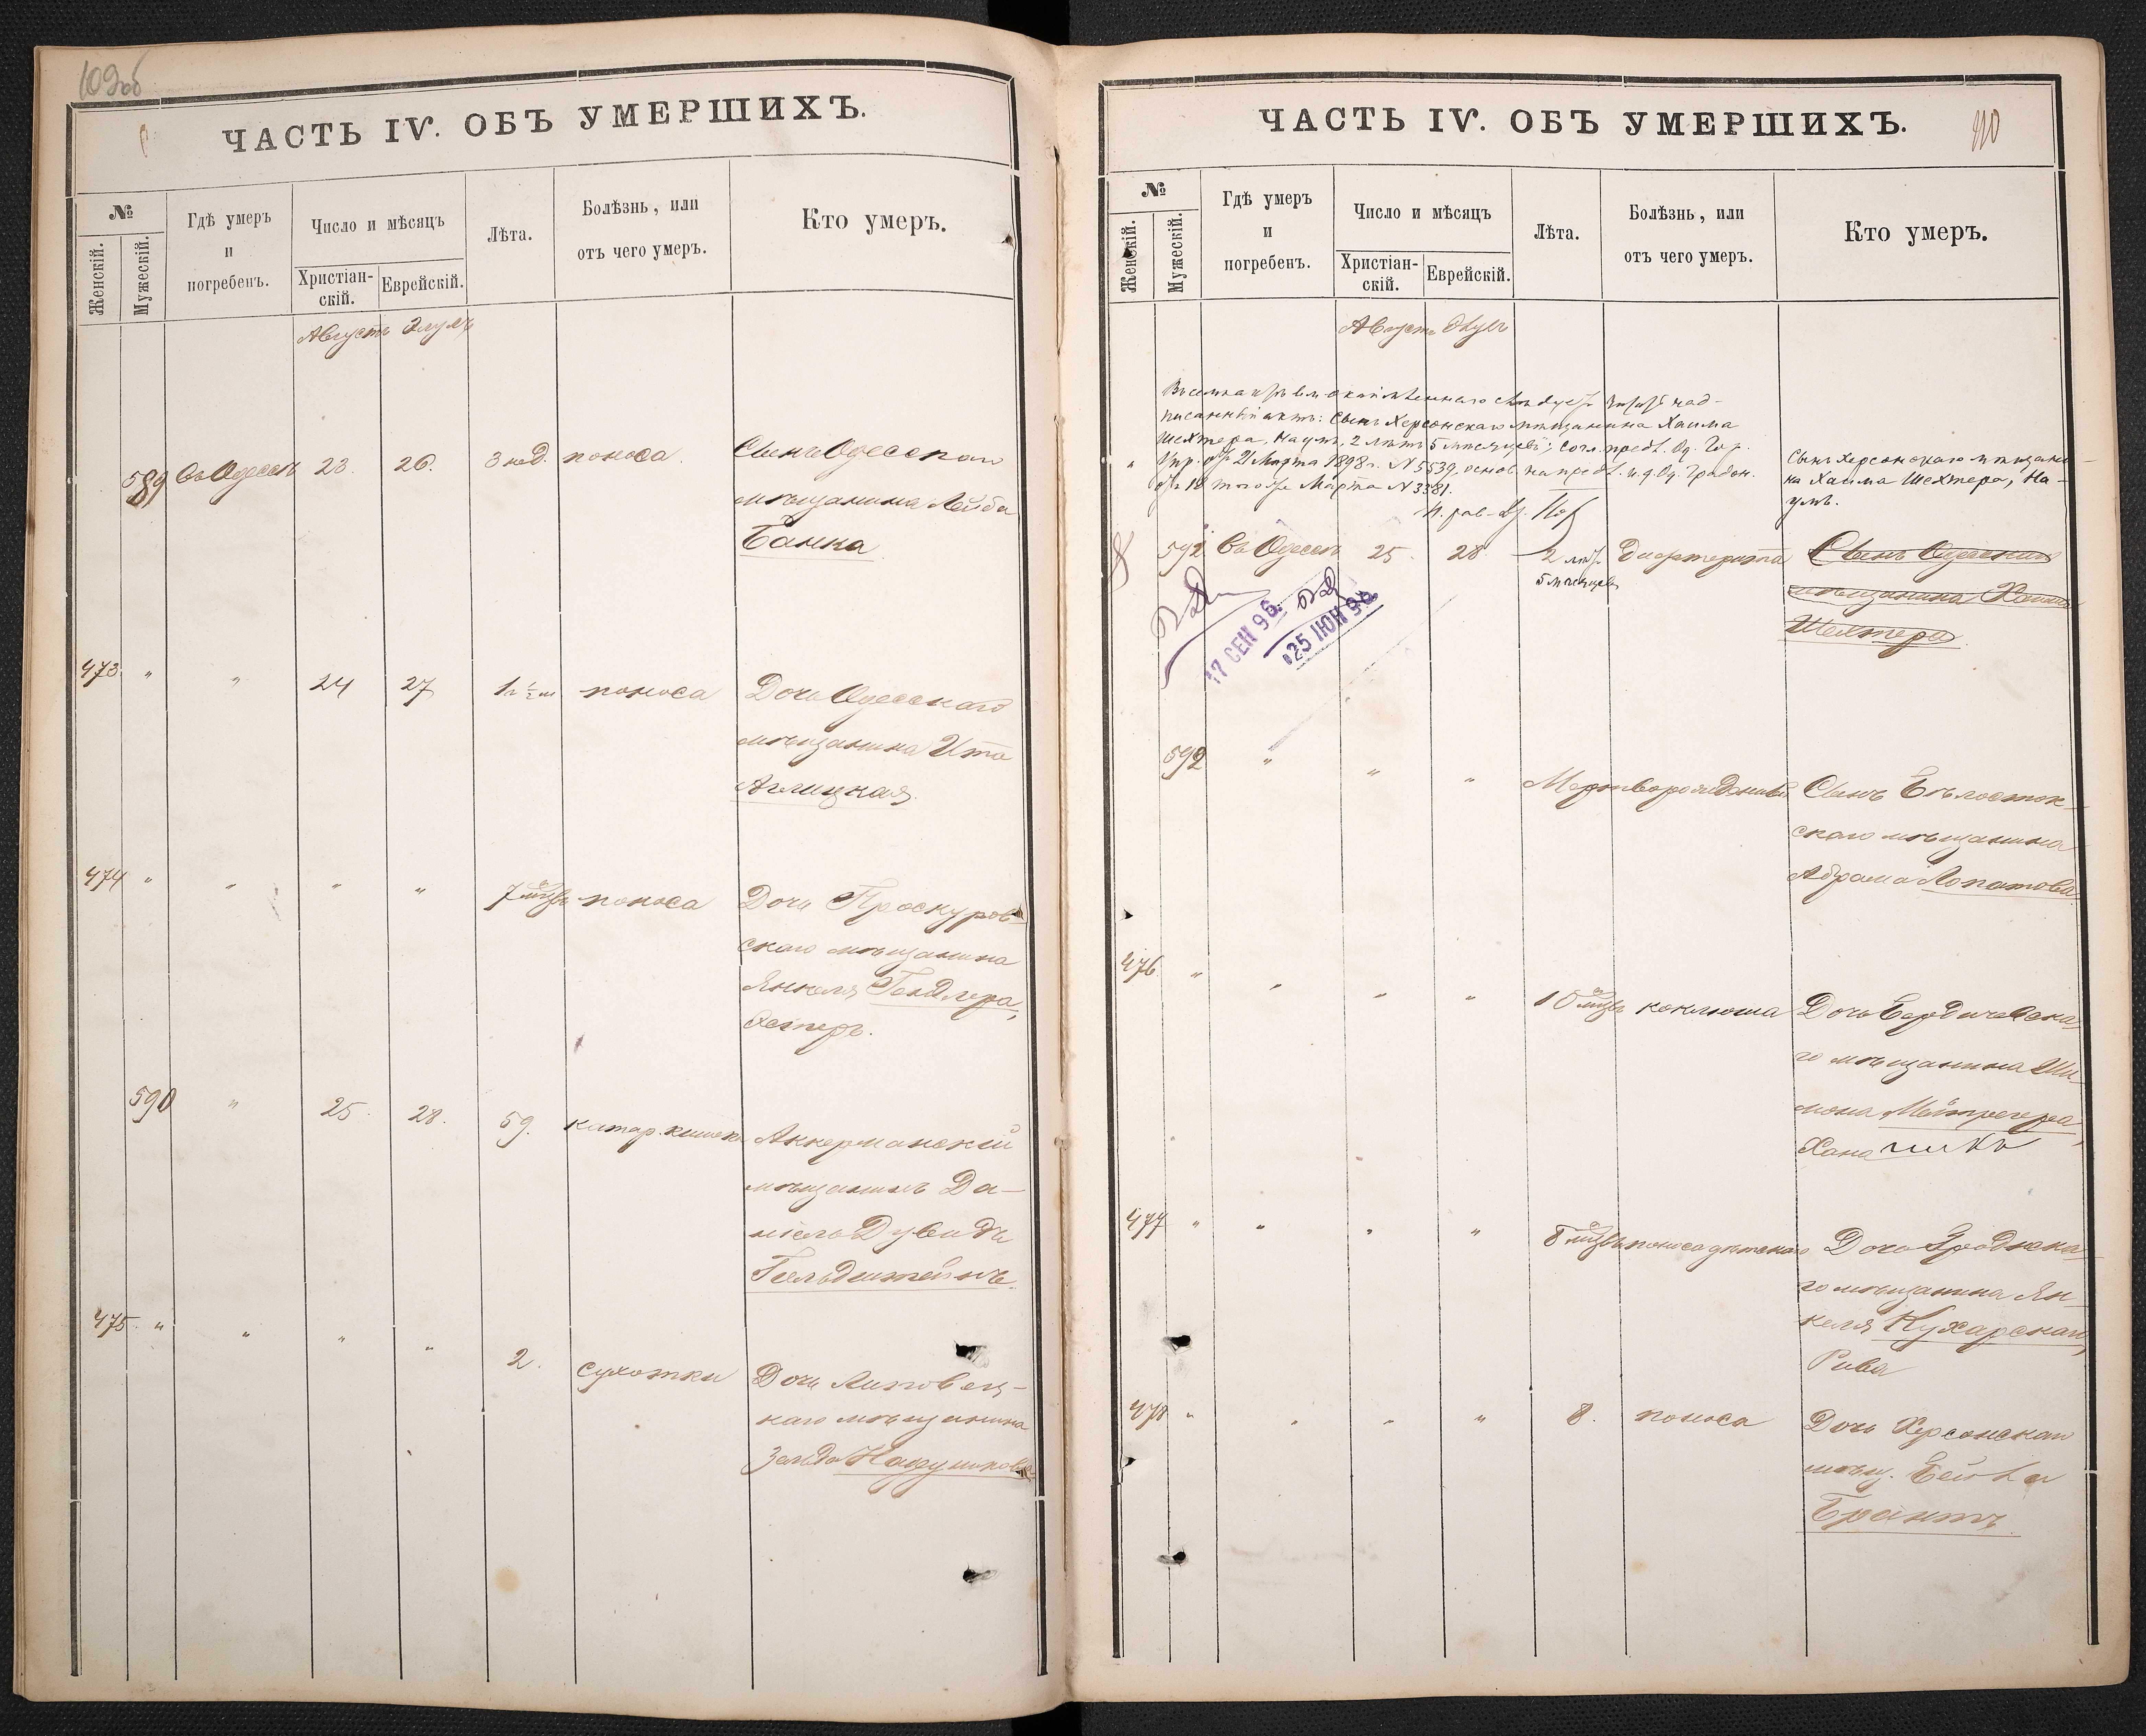 109об
ЧАСТЬ IV. ОБЪ УМЕРШИХЪ.
№
Женскій.
Мужескій.
Гдѣ умеръ
и
погребенъ.
Число и мѣсяцъ
Христіан-
скій.
Еврейскій.
Лѣта.
Болѣзнь, или
отъ чего умеръ.
Кто умеръ.
Августъ Элулъ
589 Въ Одессѣ 23. 26. 3 нед. поноса. Сынъ Одесскаго
мѣщанина Лейба
Банка
473. " " 24 27 поноса Дочь Одесскаго
мѣщанина Ита
474 " " " " 7 поноса Дочь Проскуров-
скаго мѣщанина
Янкеля Гендлера,
Эстеръ.
590 " 25. 28. 59. катар. кишекъ Аккерманскій
мѣщанинъ Да-
ніель Дувидъ
Гольдштейнъ.
475. " " " " 2. сухотки Дочь Липовец-
каго мѣщанина
Зельда
110
ЧАСТЬ IV. ОБЪ УМЕРШИХЪ.
№
Женскій.
Мужескій.
Гдѣ умеръ
и
погребенъ.
Число и мѣсяцъ
Христіан-
скій.
Еврейскій.
Лѣта.
Болѣзнь, или
отъ чего умеръ.
Кто умеръ.
Августъ Элулъ
над-
писанный актъ: Сынъ Херсонскаго мѣщанина Хаима
Шехтера, Наумъ, 2 лѣтъ 5 мѣсяцевъ; согл. предл. Од. Гор.
Упр. отъ 21 Марта 1898 г. № 5539, основ. на предл. и. д. Од. Градон.
отъ 18 того же Марта № 3381.
Сынъ Херсонскаго мѣщани-
на Хаима Шехтера, На-
умъ.
591 Въ Одессѣ 25. 28 2 лѣтъ Дифтерита Сынъ Одесскаго
5 мѣсяцевъ
мѣщанина Хаима
Шехтера
17 СЕН 96
25 ІЮН 96
592 " " " Мертворожденный Сынъ Бѣлосток-
скаго мѣщанина
Абрама Лопатова
476 " " " " 10 коклюша Дочь Бердичевска-
го мѣщанина Ши-
мона
Хана
477 " " " " 8 поноса дѣтскаго Дочь Гродненска-
го мѣщанина Ян-
келя Кухарскаго,
Рива
478 " " " " 8. поноса Дочь Херсонскаго
мѣщ. Бейла
Брантъ